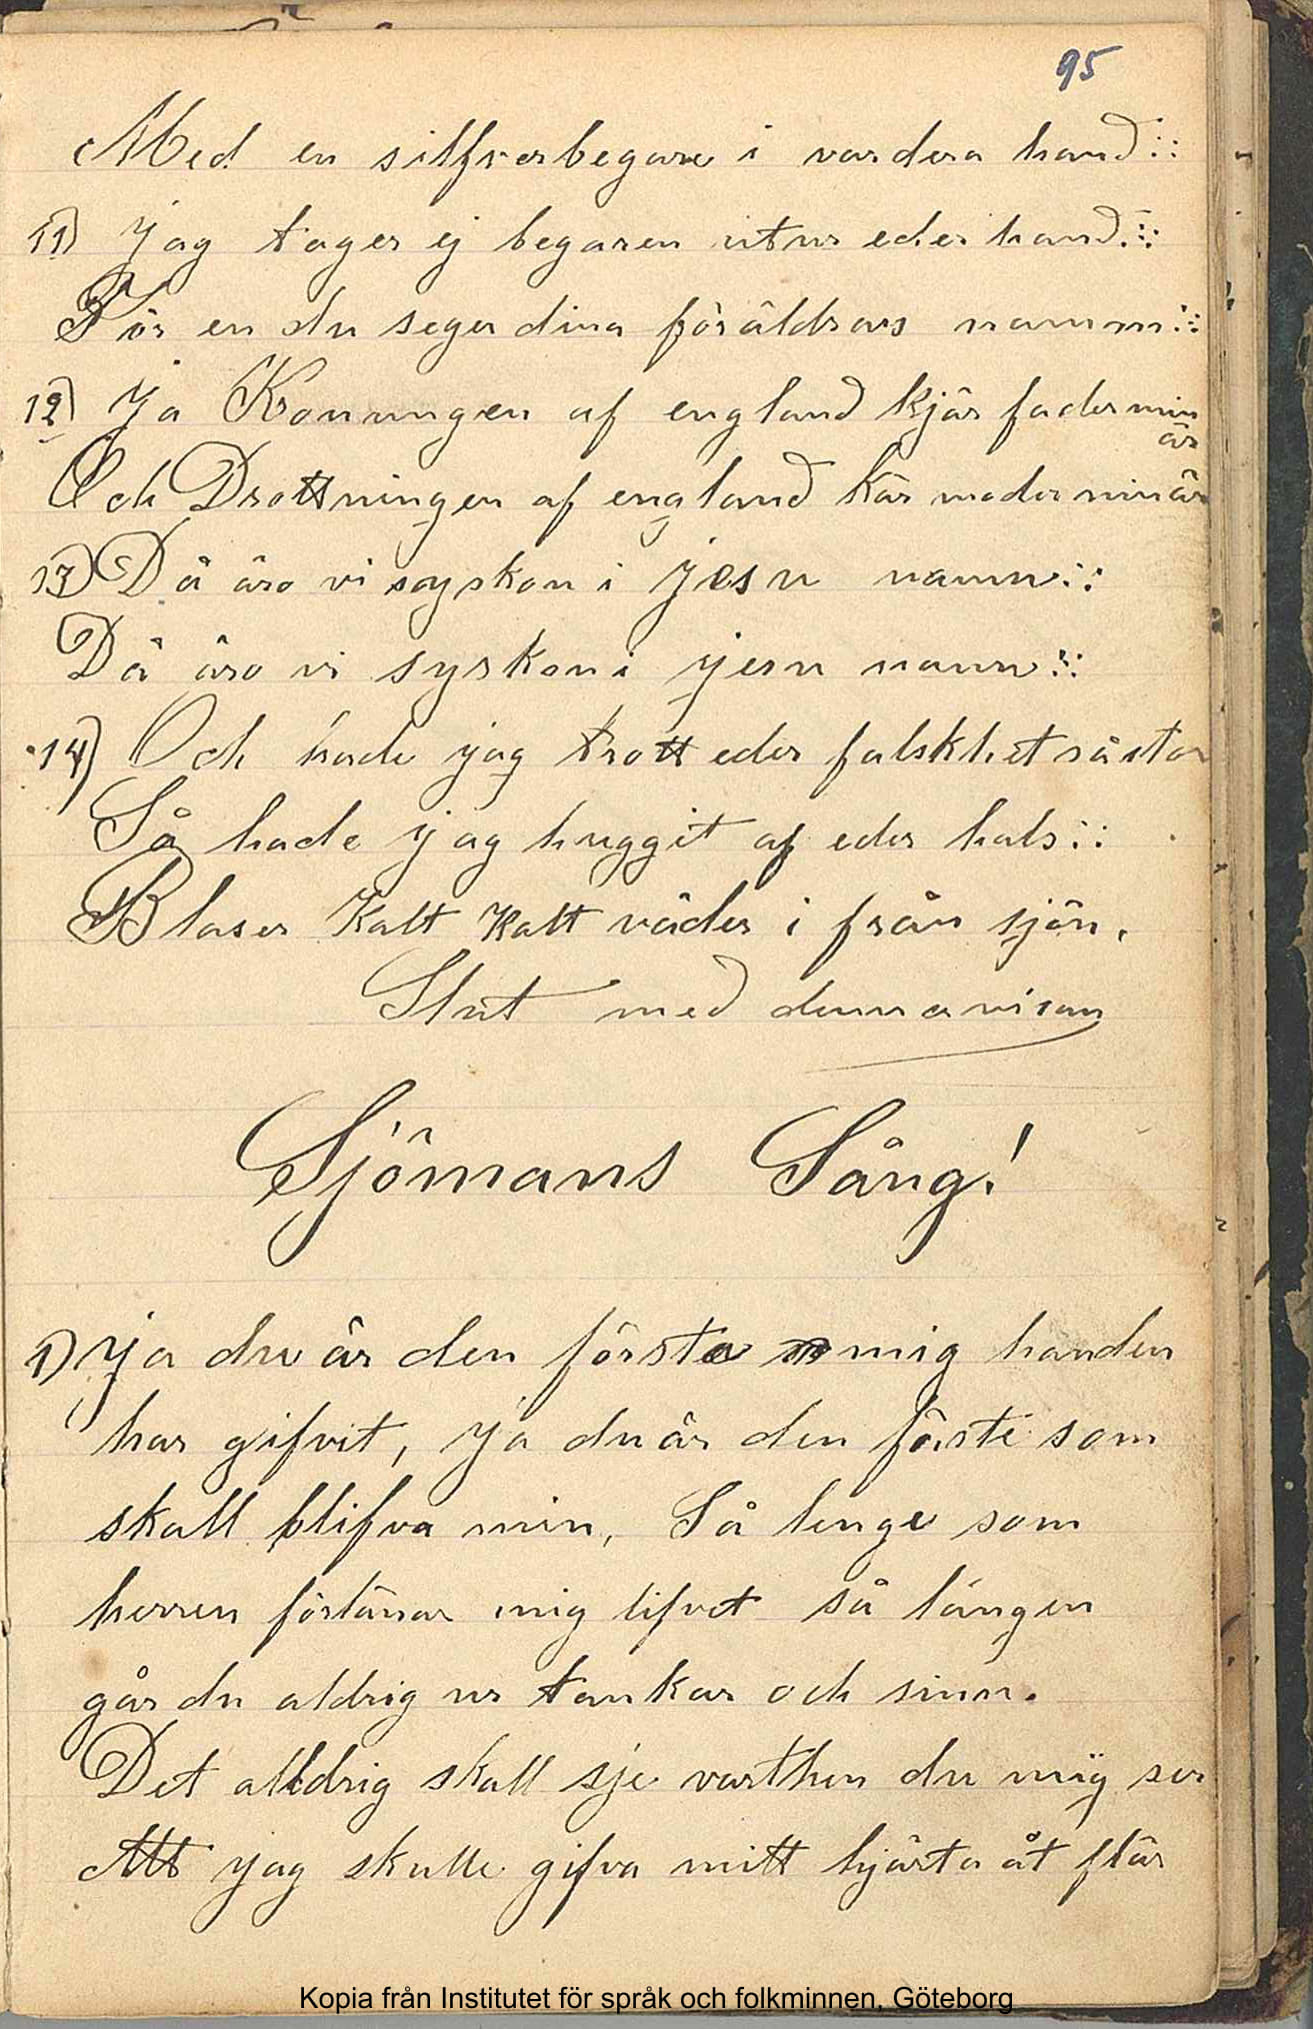 95
Med en silfverbegare i vardera hand :::
11) Jag tager ej begaren utur eder hand :::
För en du seger dina föräldrars namm :::
12) Ja Konungen af england kjär fader min
är
Och Drottningen af england kär moder min är
13) Då äro vi syskon i Jesu namn :::
Då äro vi syskon i jesu namn :::
14) Och hade jag trott eder falskhet så stor
Så hade jag huggit af eder hals :::
Blaser kalt kalt väder i från sjön.
Slut med denna visan
Sjömans Sång!
1) Ja du är den första mig handen
har gifvit, Ja du är den förste som
skall blifva min, Så lenge som
herren förlänar mig lifvet så längen
går du aldrig ur tankar och sinn.
Det alldrig skall sje varthen du mig ser
Att jag skulle gifva mitt hjärta åt flär
Kopia från Institutet för språk och folkminnen, Göteborg